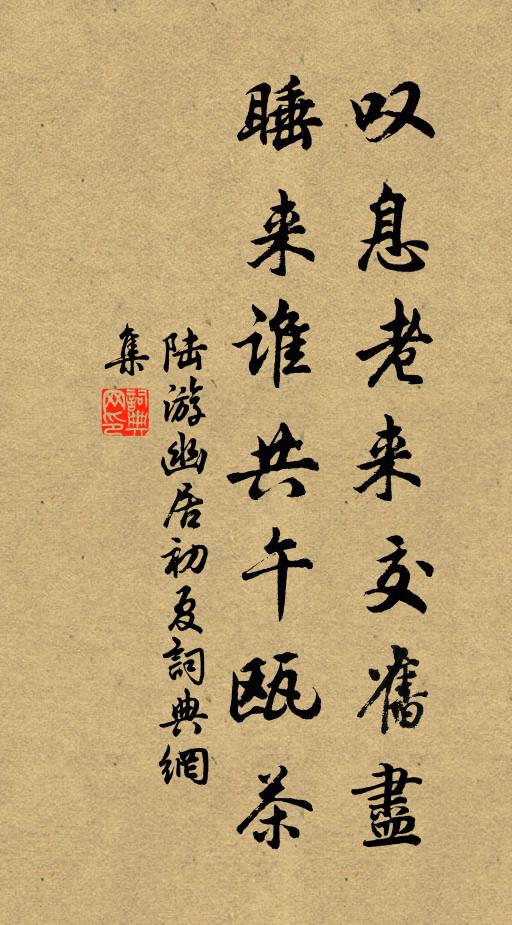 叹息老来交舊盡
睡来谁共午瓯茶
陆游幽居初夏詞典網
集
詞典
网印